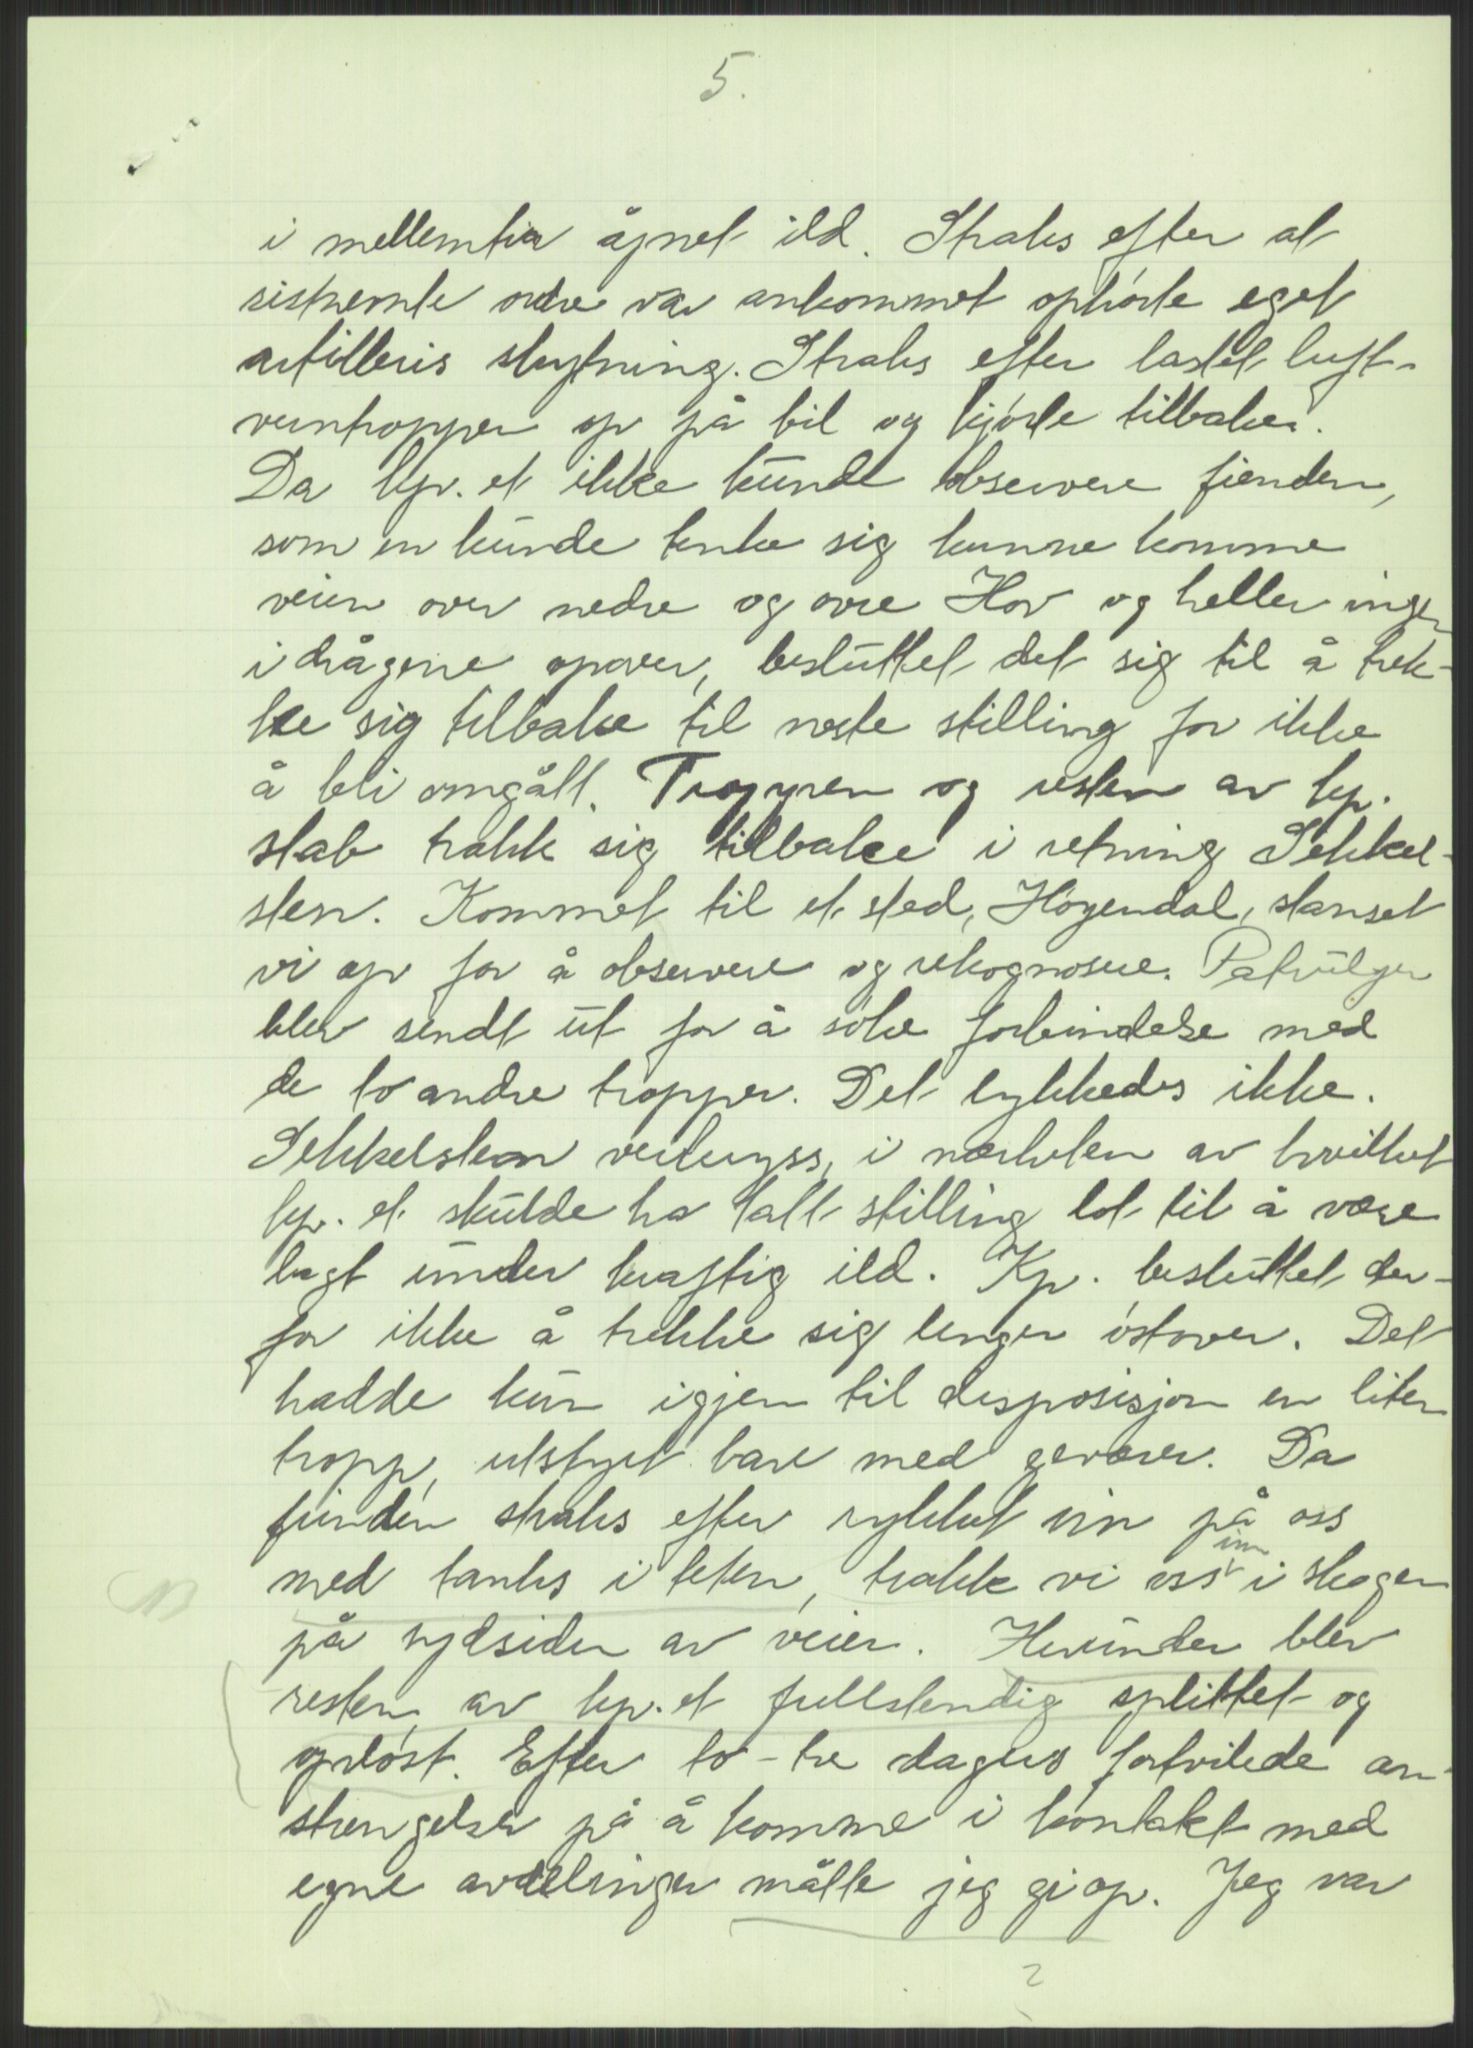 5.
i mellemtia åpnet ild. Straks efter at
sistnevnte ordre var ankommet ophørte eget
artilleris skytning. Straks efter lastet luft-
verntroppen op på bil og kjørte tilbake.
Da kp. et ikke kunde observere fienden,
som en kunde tenke sig kunne komme
veien over nedre og øvre Hov og heller ingen
i drågene opover, besluttet det sig til å trek-
ke sig tilbake til neste stilling for ikke
å bli omgått. Troppen og resten av kp.
stab trakk sig tilbake i retning Sekkel-
sten. Kommet til et sted, Høgendal, stanset
vi op for å observere og rekognosere. Patruljer
blev sendt ut for å søke forbindelse med
de to andre tropper. Det lykkedes ikke.
Sekkelsten veikryss, i nærheten av hvilket
kp. et skulde ha tatt stilling lot til å være
lagt under kraftig ild. Kp. besluttet der-
for ikke å trekke sig lenger østover. Det
hadde kun igjen til disposisjon en liten
tropp, utstyrt bare med geværer. Da
fienden straks efter rykket inn på oss
NB med tanks i teten, trakk vi oss inn i skogen
på sydsiden av veien. Herunder blev
resten av kp. et fullstendig splittet og
opløst. Efter to-tre dagers fortvilede an-
strengelser på å komme i kontakt med
egne avdelinger måtte jeg gi op. Jeg var
?